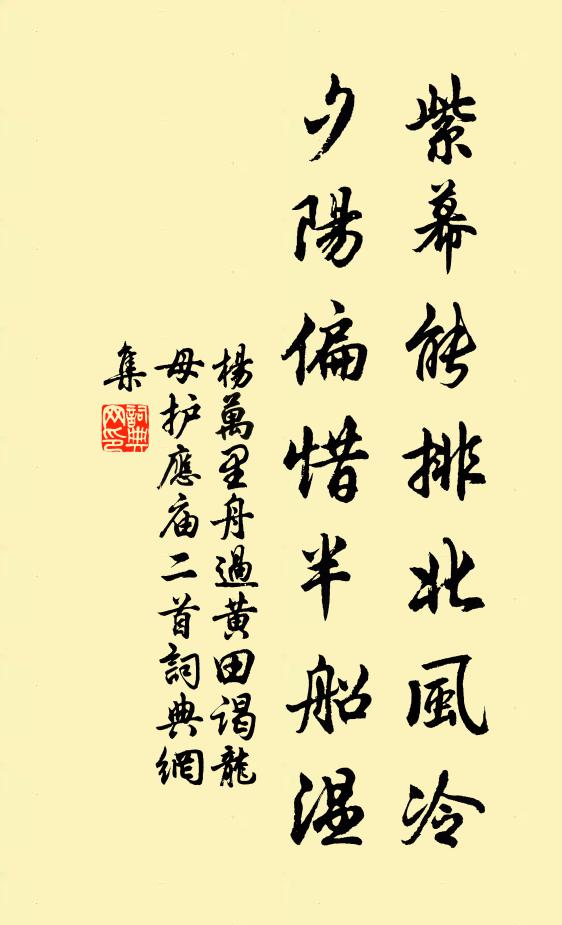 紫幕能排北風冷
夕陽偏惜半船温
楊萬里舟過黄田谒龍
母护應庙二首詞典網
集
詞典
网印